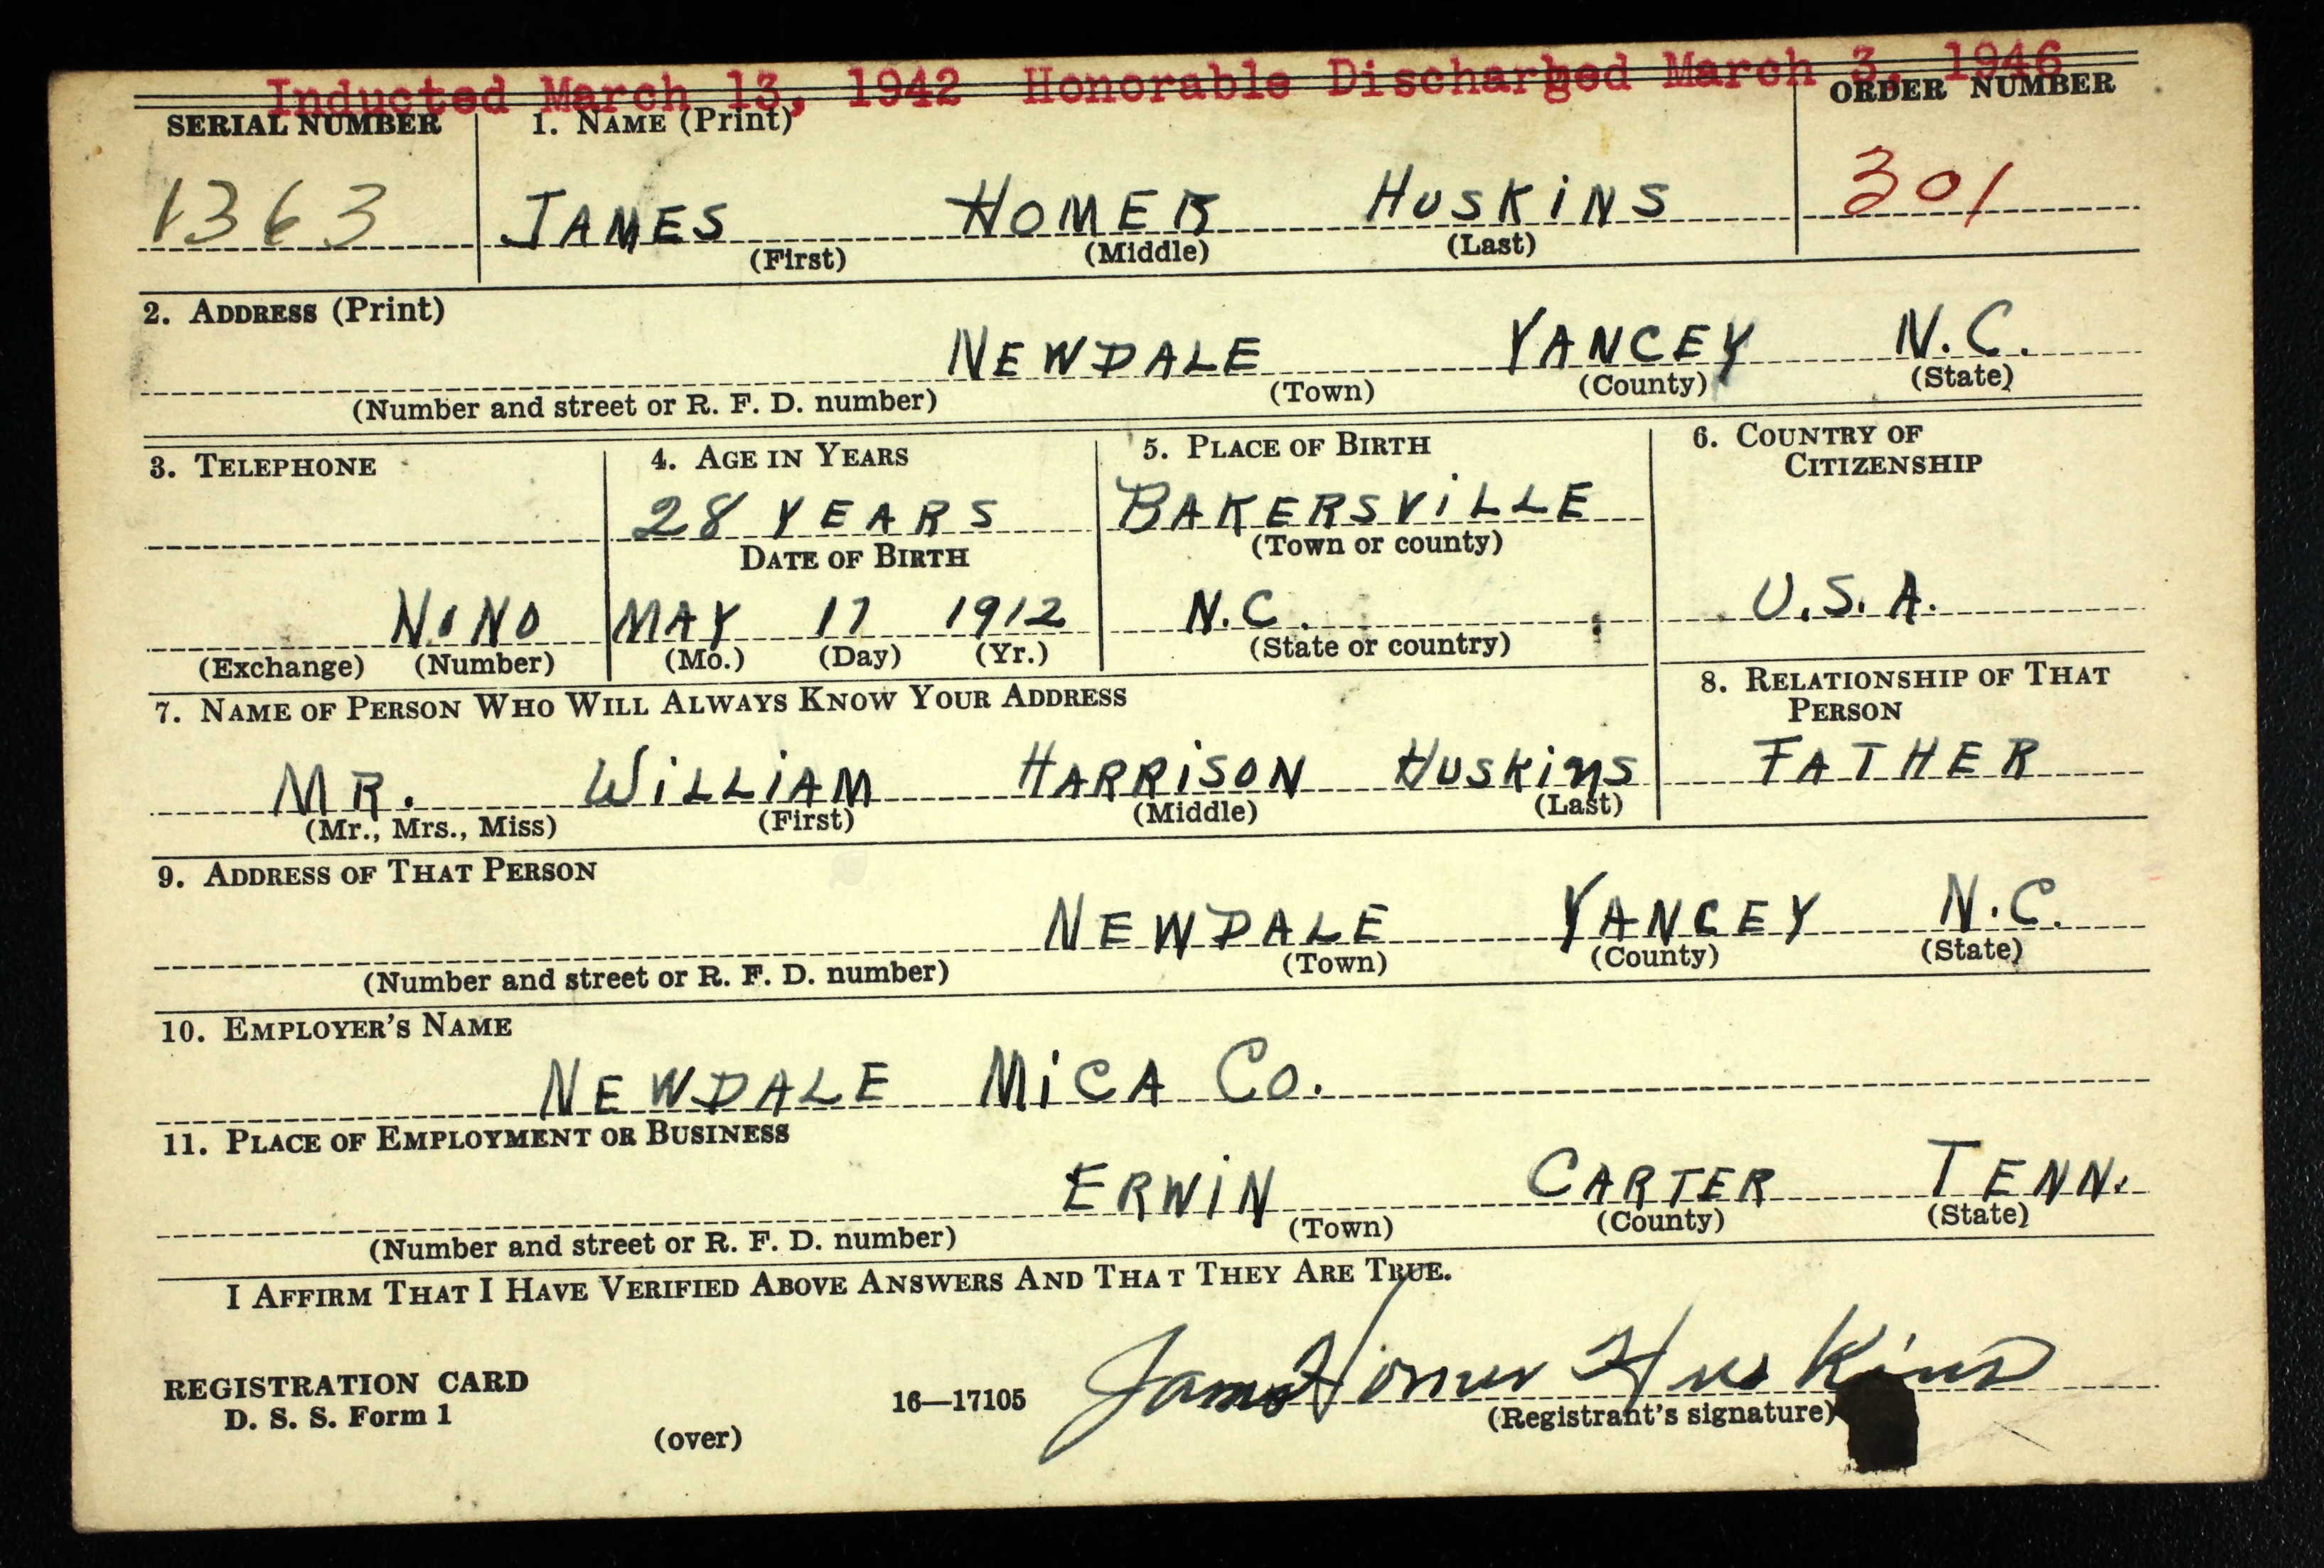 Inducted March 13, 1942 Honorable Discharged March 3, 1946
SERIAL NUMBER 1. NAME (Print) ORDER NUMBER
1363 JAMES HOMER HUSKINS 301
(First) (Middle) (Last)
2. ADDRESS (Print)
NEWDALE YANCEY N.C.
(Number and street or R. F. D. number) (Town) (County) (State)
3. TELEPHONE 4. AGE IN YEARS 5. PLACE OF BIRTH 6. COUNTRY OF CITIZENSHIP
28 YEARS BAKERSVILLE
DATE OF BIRTH (Town or county)
MAY 17 1912 N.C. U.S.A.
(Exchange) (Number) (Mo.) (Day) (Yr.) (State or country)
7. NAME OF PERSON WHO WILL ALWAYS KNOW YOUR ADDRESS 8. RELATIONSHIP OF THAT PERSON
MR. WILLIAM HARRISON HUSKINS FATHER
(Mr., Mrs., Miss) (First) (Middle) (Last)
9. ADDRESS OF THAT PERSON
NEWDALE YANCEY N.C.
(Number and street or R. F. D. number) (Town) (County) (State)
10. EMPLOYER'S NAME
NEWDALE MICA CO.
11. PLACE OF EMPLOYMENT OR BUSINESS
ERWIN CARTER TENN.
(Number and street or R. F. D. number) (Town) (County) (State)
I AFFIRM THAT I HAVE VERIFIED ABOVE ANSWERS AND THAT THEY ARE TRUE.
James Homer Huskins
REGISTRATION CARD
D. S. S. Form 1 16—17105 (Registrant's signature)
(over)